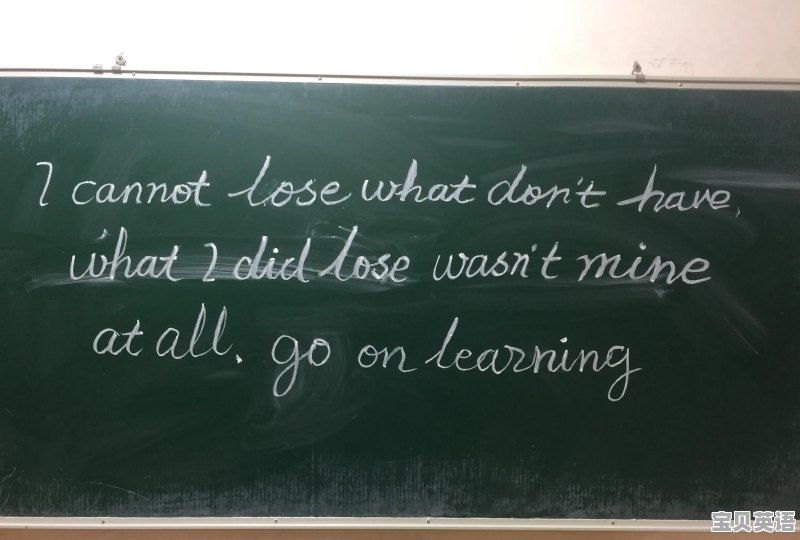 I cannot lose what don't have,
what I did lose wasn't mine
at all. go on learning
宝贝英语